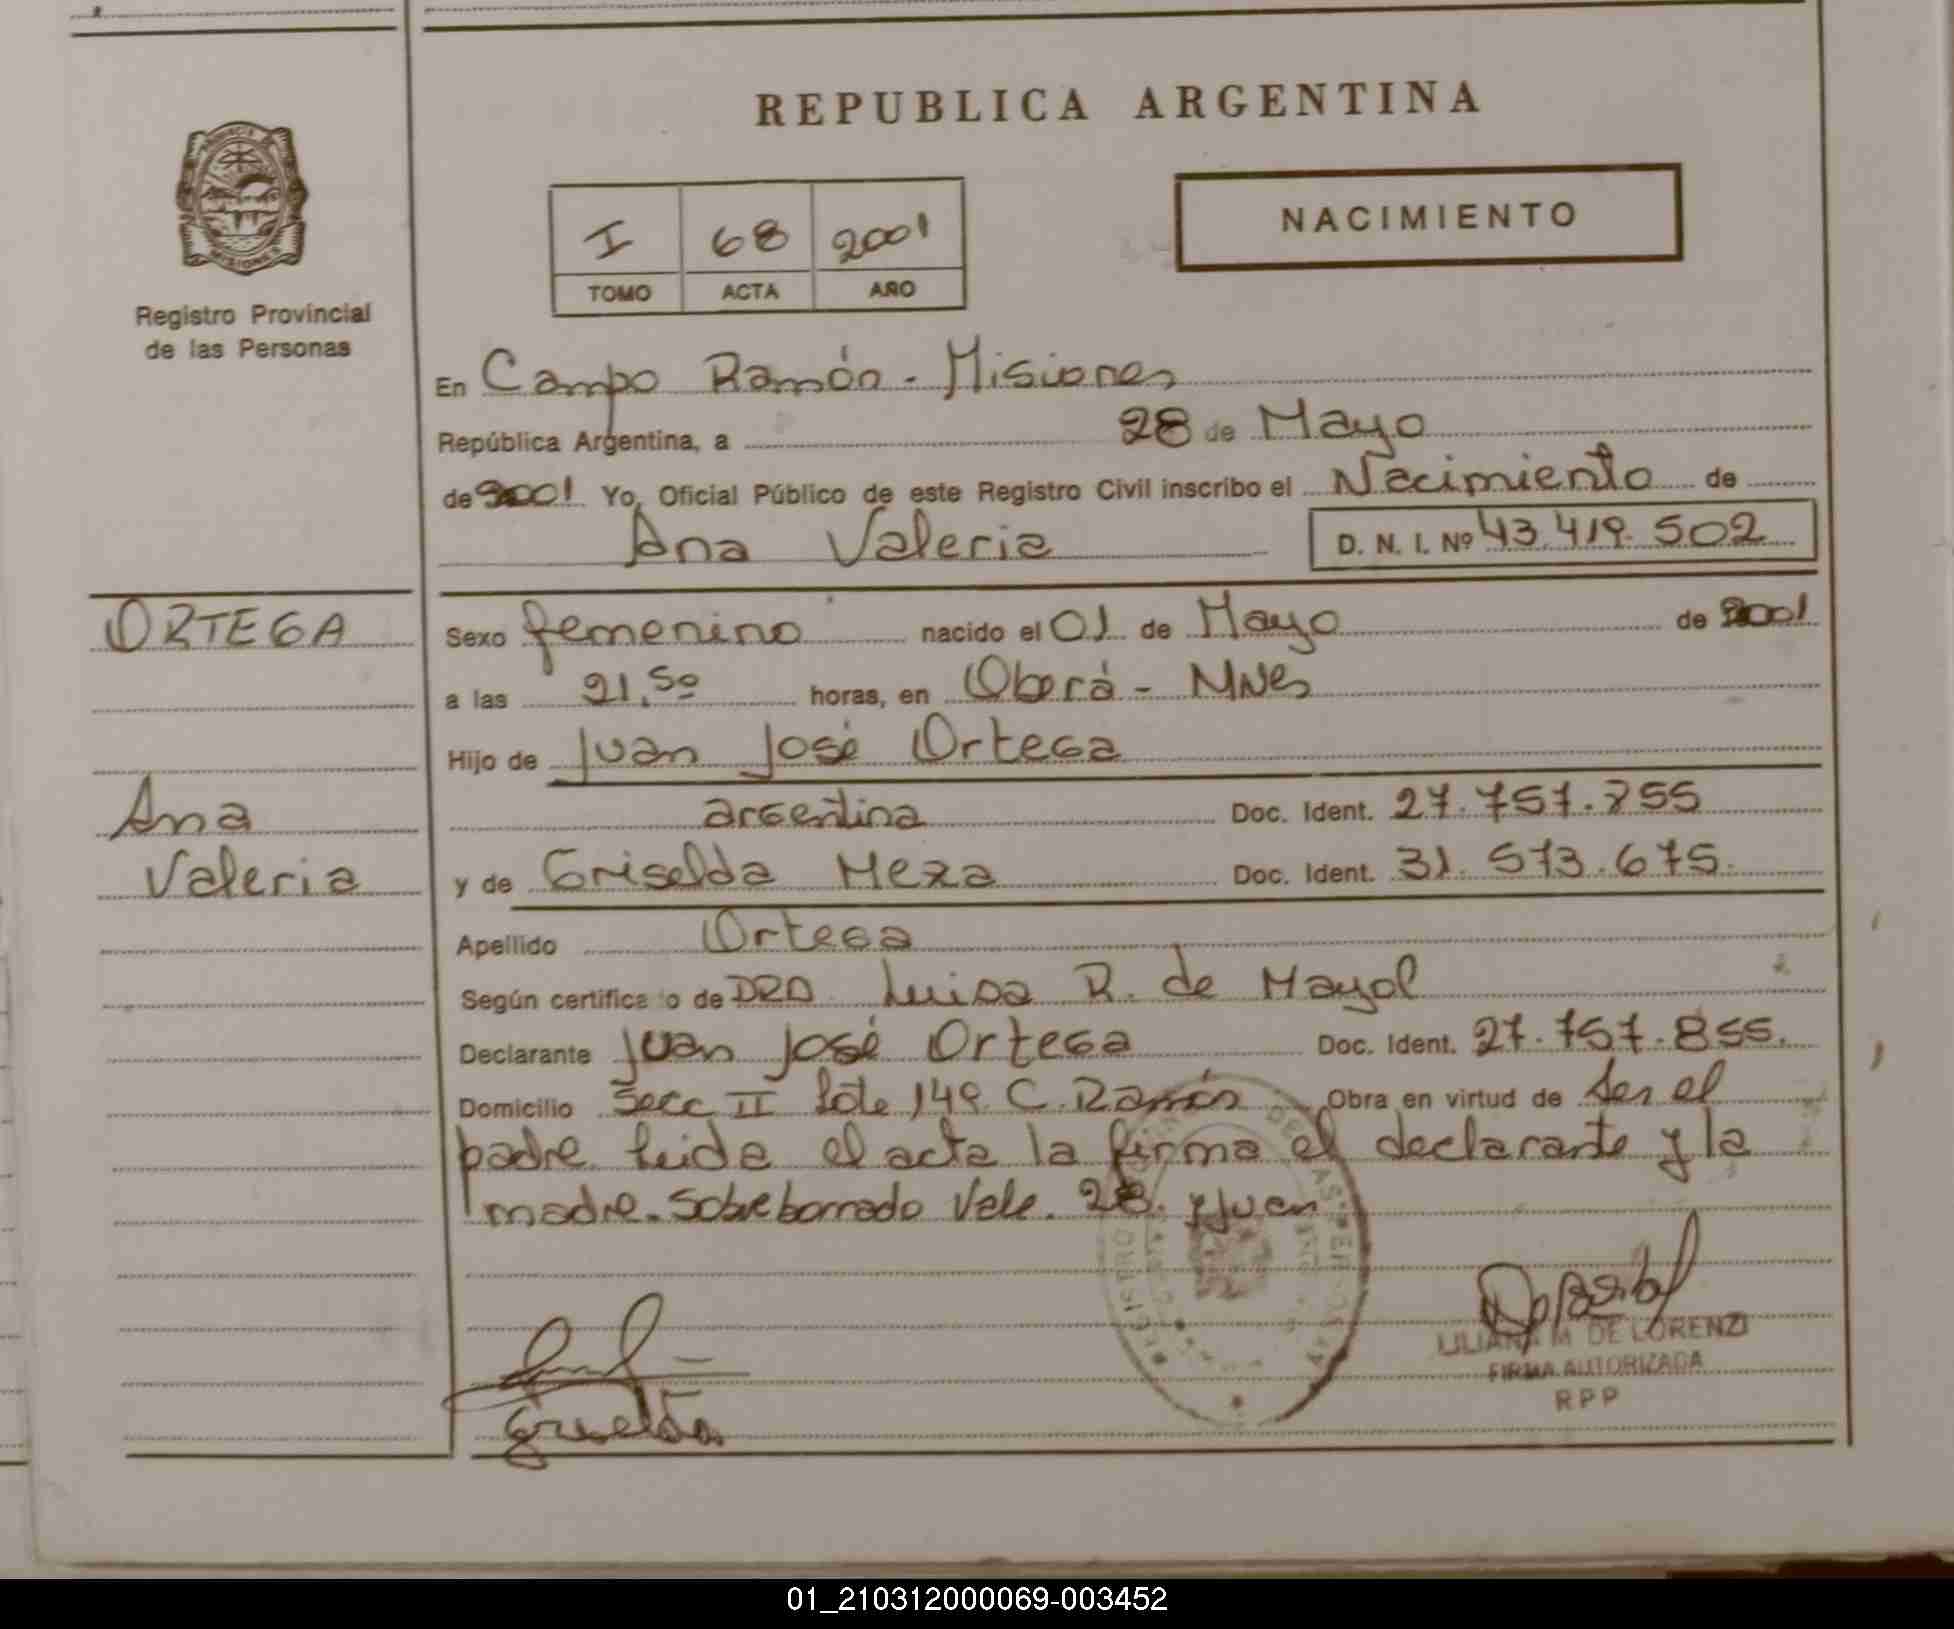 REPUBLICA ARGENTINA
PROVINCIA
MISIONES
Registro Provincial
de las Personas
I 68 2001
TOMO ACTA AÑO
NACIMIENTO
En Campo Ramón - Misiones
República Argentina, a 28 de Mayo
de 2001 Yo, Oficial Público de este Registro Civil inscribo el Nacimiento de
Ana Valeria D. N. I. Nº 43.419.502
ORTEGA
Sexo femenino nacido el 01 de Mayo de 2001
a las 21,50 horas, en Oberá - MNes
Hijo de Juan José Ortega
Ana
argentina Doc. Ident. 27.757.855
Valeria
y de Griselda Meza Doc. Ident. 31.573.675.
Apellido Ortega
Según certificado de DRA Luisa R. de Mayol
Declarante Juan José Ortega Doc. Ident. 27.757.855.
Domicilio Secc II lote 149 C. Ramón Obra en virtud de ser el
padre leida el acta la firma el declarante y la
madre. Sobreborrado Vale. 28. y Juan
Griselda
LILIANA M DE LORENZI
FIRMA AUTORIZADA
RPP
01_210312000069-003452